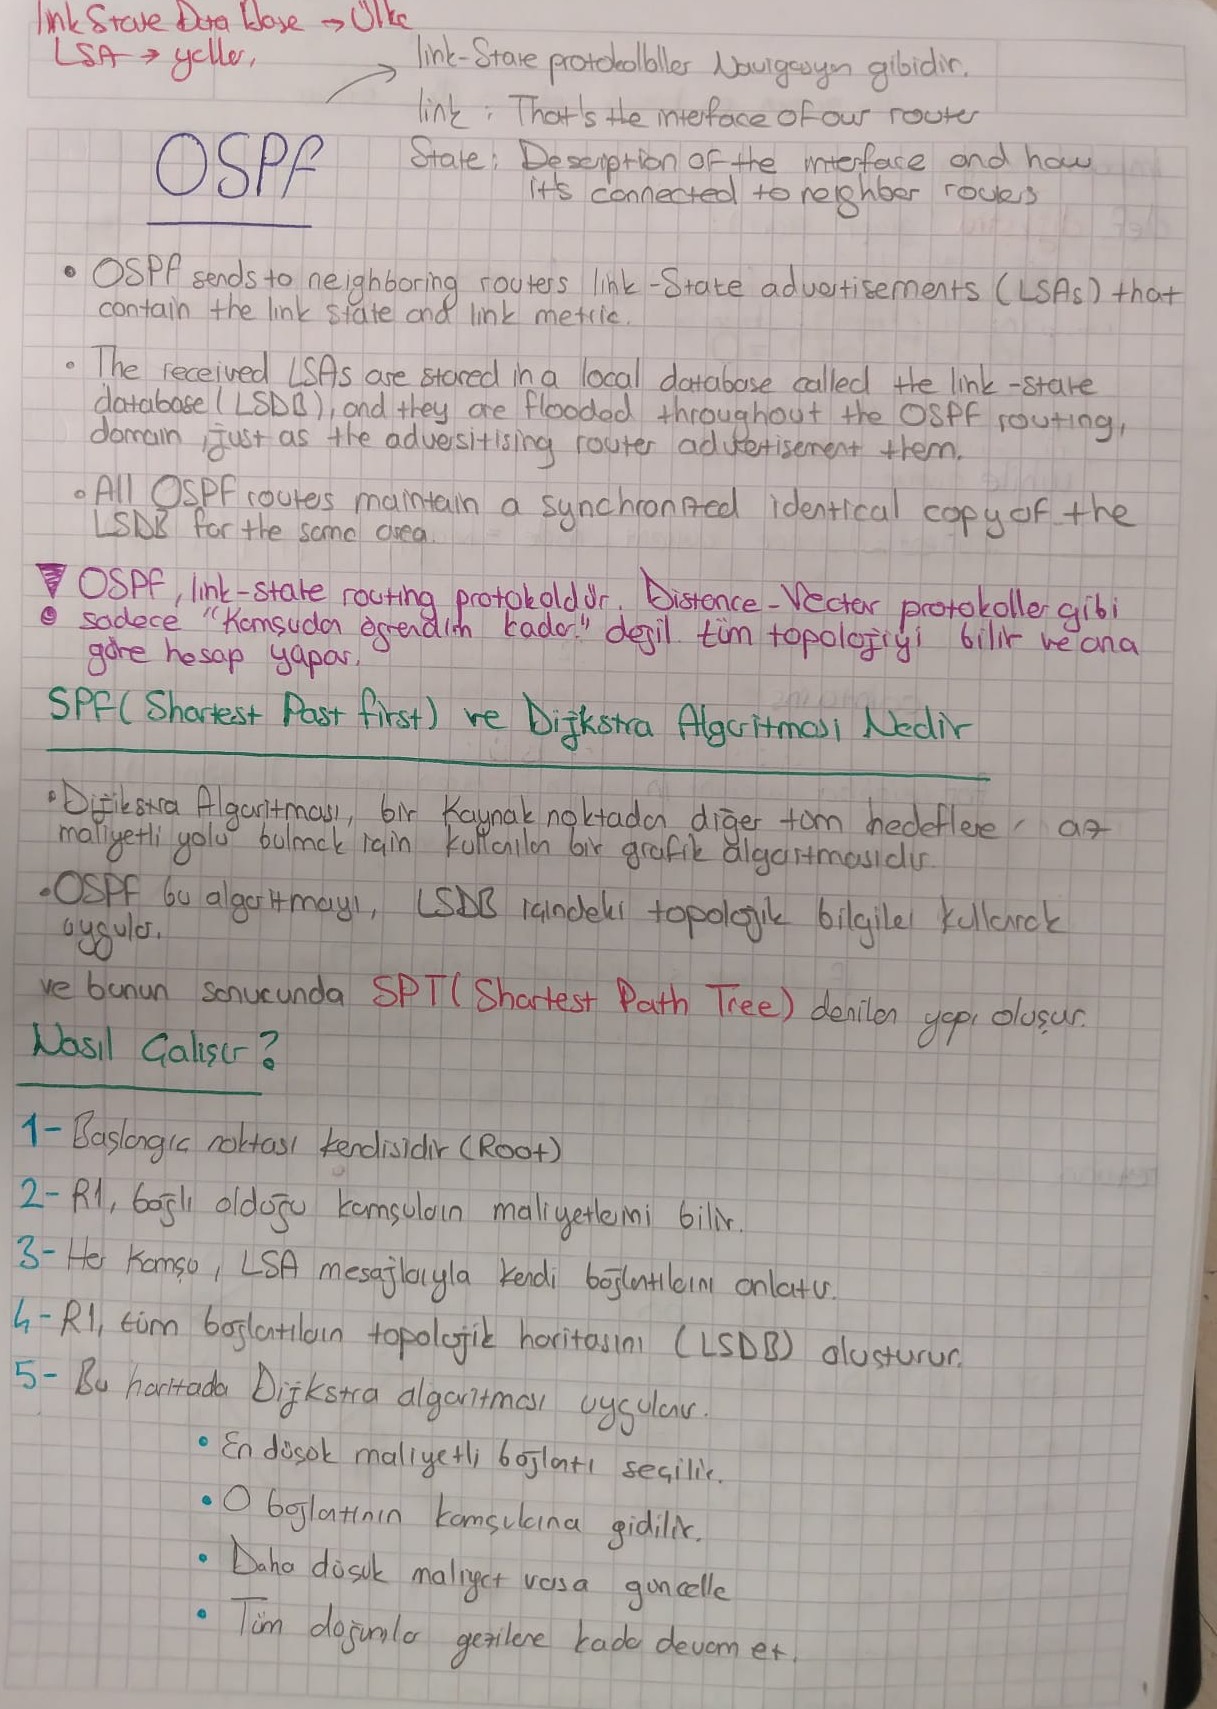 link State Data Base → Ülke
LSA → yollar,
link-State protokolloller Navigasyon gibidir.
link : That's the interface of our router
OSPf
State: Description of the interface and how
it's connected to neighber routers
• OSPf sends to neighboring routers link-State advertisements (LSAs) that
contain the link state and link metric.
• The received LSAs are stored in a local database called the link-state
database (LSDB), and they are flooded throughout the OSPF routing,
domain, just as the adversitising router advertisement them.
• All OSPF routes maintain a synchronized identical copy of the
LSDB for the same area.
OSPF, link-state routing protokoldür. Distance-Vector protokoller gibi
• sadece "Komşudan öğrendim kadar." değil tüm topolojiyi bilir ve ona
göre hesap yapar.
SPF (Shortest Past first) ve Dijkstra Algoritması Nedir
• Dijikstra Algoritması, bir kaynak noktadan diğer tüm hedeflere, az
maliyetli yolu bulmak için kullanılan bir grafik algoritmasıdır.
• OSPF bu algoritmayı, LSDB içindeki topolojik bilgiler kullanarak
uygular.
ve bunun sonucunda SPT (Shortest Path Tree) denilen yapı oluşur.
Nasıl Çalışır?
1- Başlangıç noktası kendisidir (Root)
2- R1, bağlı olduğu komşuların maliyetlerini bilir.
3- Her komşu, LSA mesajlarıyla kendi bağlantılarını anlatır.
4- R1, tüm bağlantıların topolojik haritasını (LSDB) oluşturur.
5- Bu haritada Dijkstra algoritması uygulanır.
• En düşük maliyetli bağlantı seçilir.
• O bağlantının komşularına gidilir.
• Daha düşük maliyet varsa güncelle
• Tüm düğümler gezilene kadar devam et.